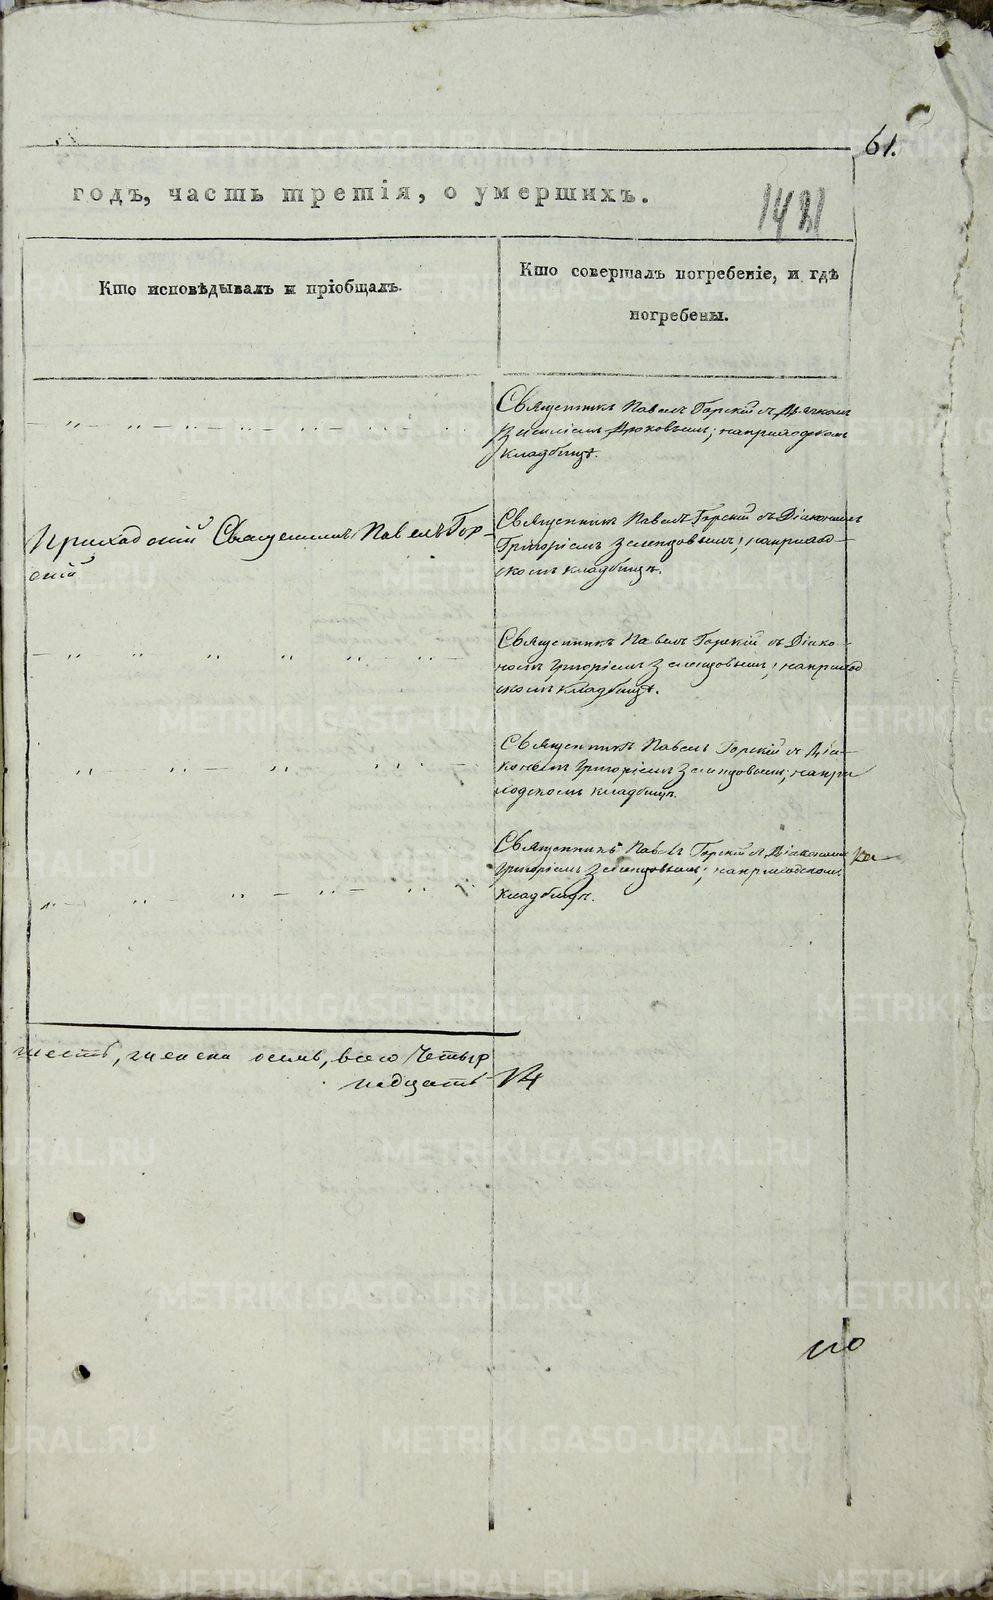 61.
годъ, часть третія, о умершихъ.
1421
Кто исповѣдывалъ и пріобщалъ.
Кто совершалъ погребеніе, и гдѣ
погребены.
Священникъ Павелъ Горскій съ Дьячкомъ
на приходскомъ
кладбищѣ.
Приходскій Священникъ Павелъ Гор-
скій
Священникъ Павелъ Горскій съ Діакономъ
Григоріемъ Зеленцовымъ; на приход-
скомъ кладбищѣ.
Священникъ Павелъ Горскій съ Діако-
номъ Григоріемъ Зеленцовымъ; на приход
скомъ кладбищѣ.
Священникъ Павелъ Горскій съ Діа-
кономъ Григоріемъ Зеленцовымъ; на при
ходскомъ кладбищѣ.
Священникъ Павелъ Горскій съ Діакономъ
Григоріемъ Зеленцовымъ; на приходскомъ
кладбищѣ.
шесть, женска осмь, всего четыр
надцать 14
METRIKI.GASO-URAL.RU